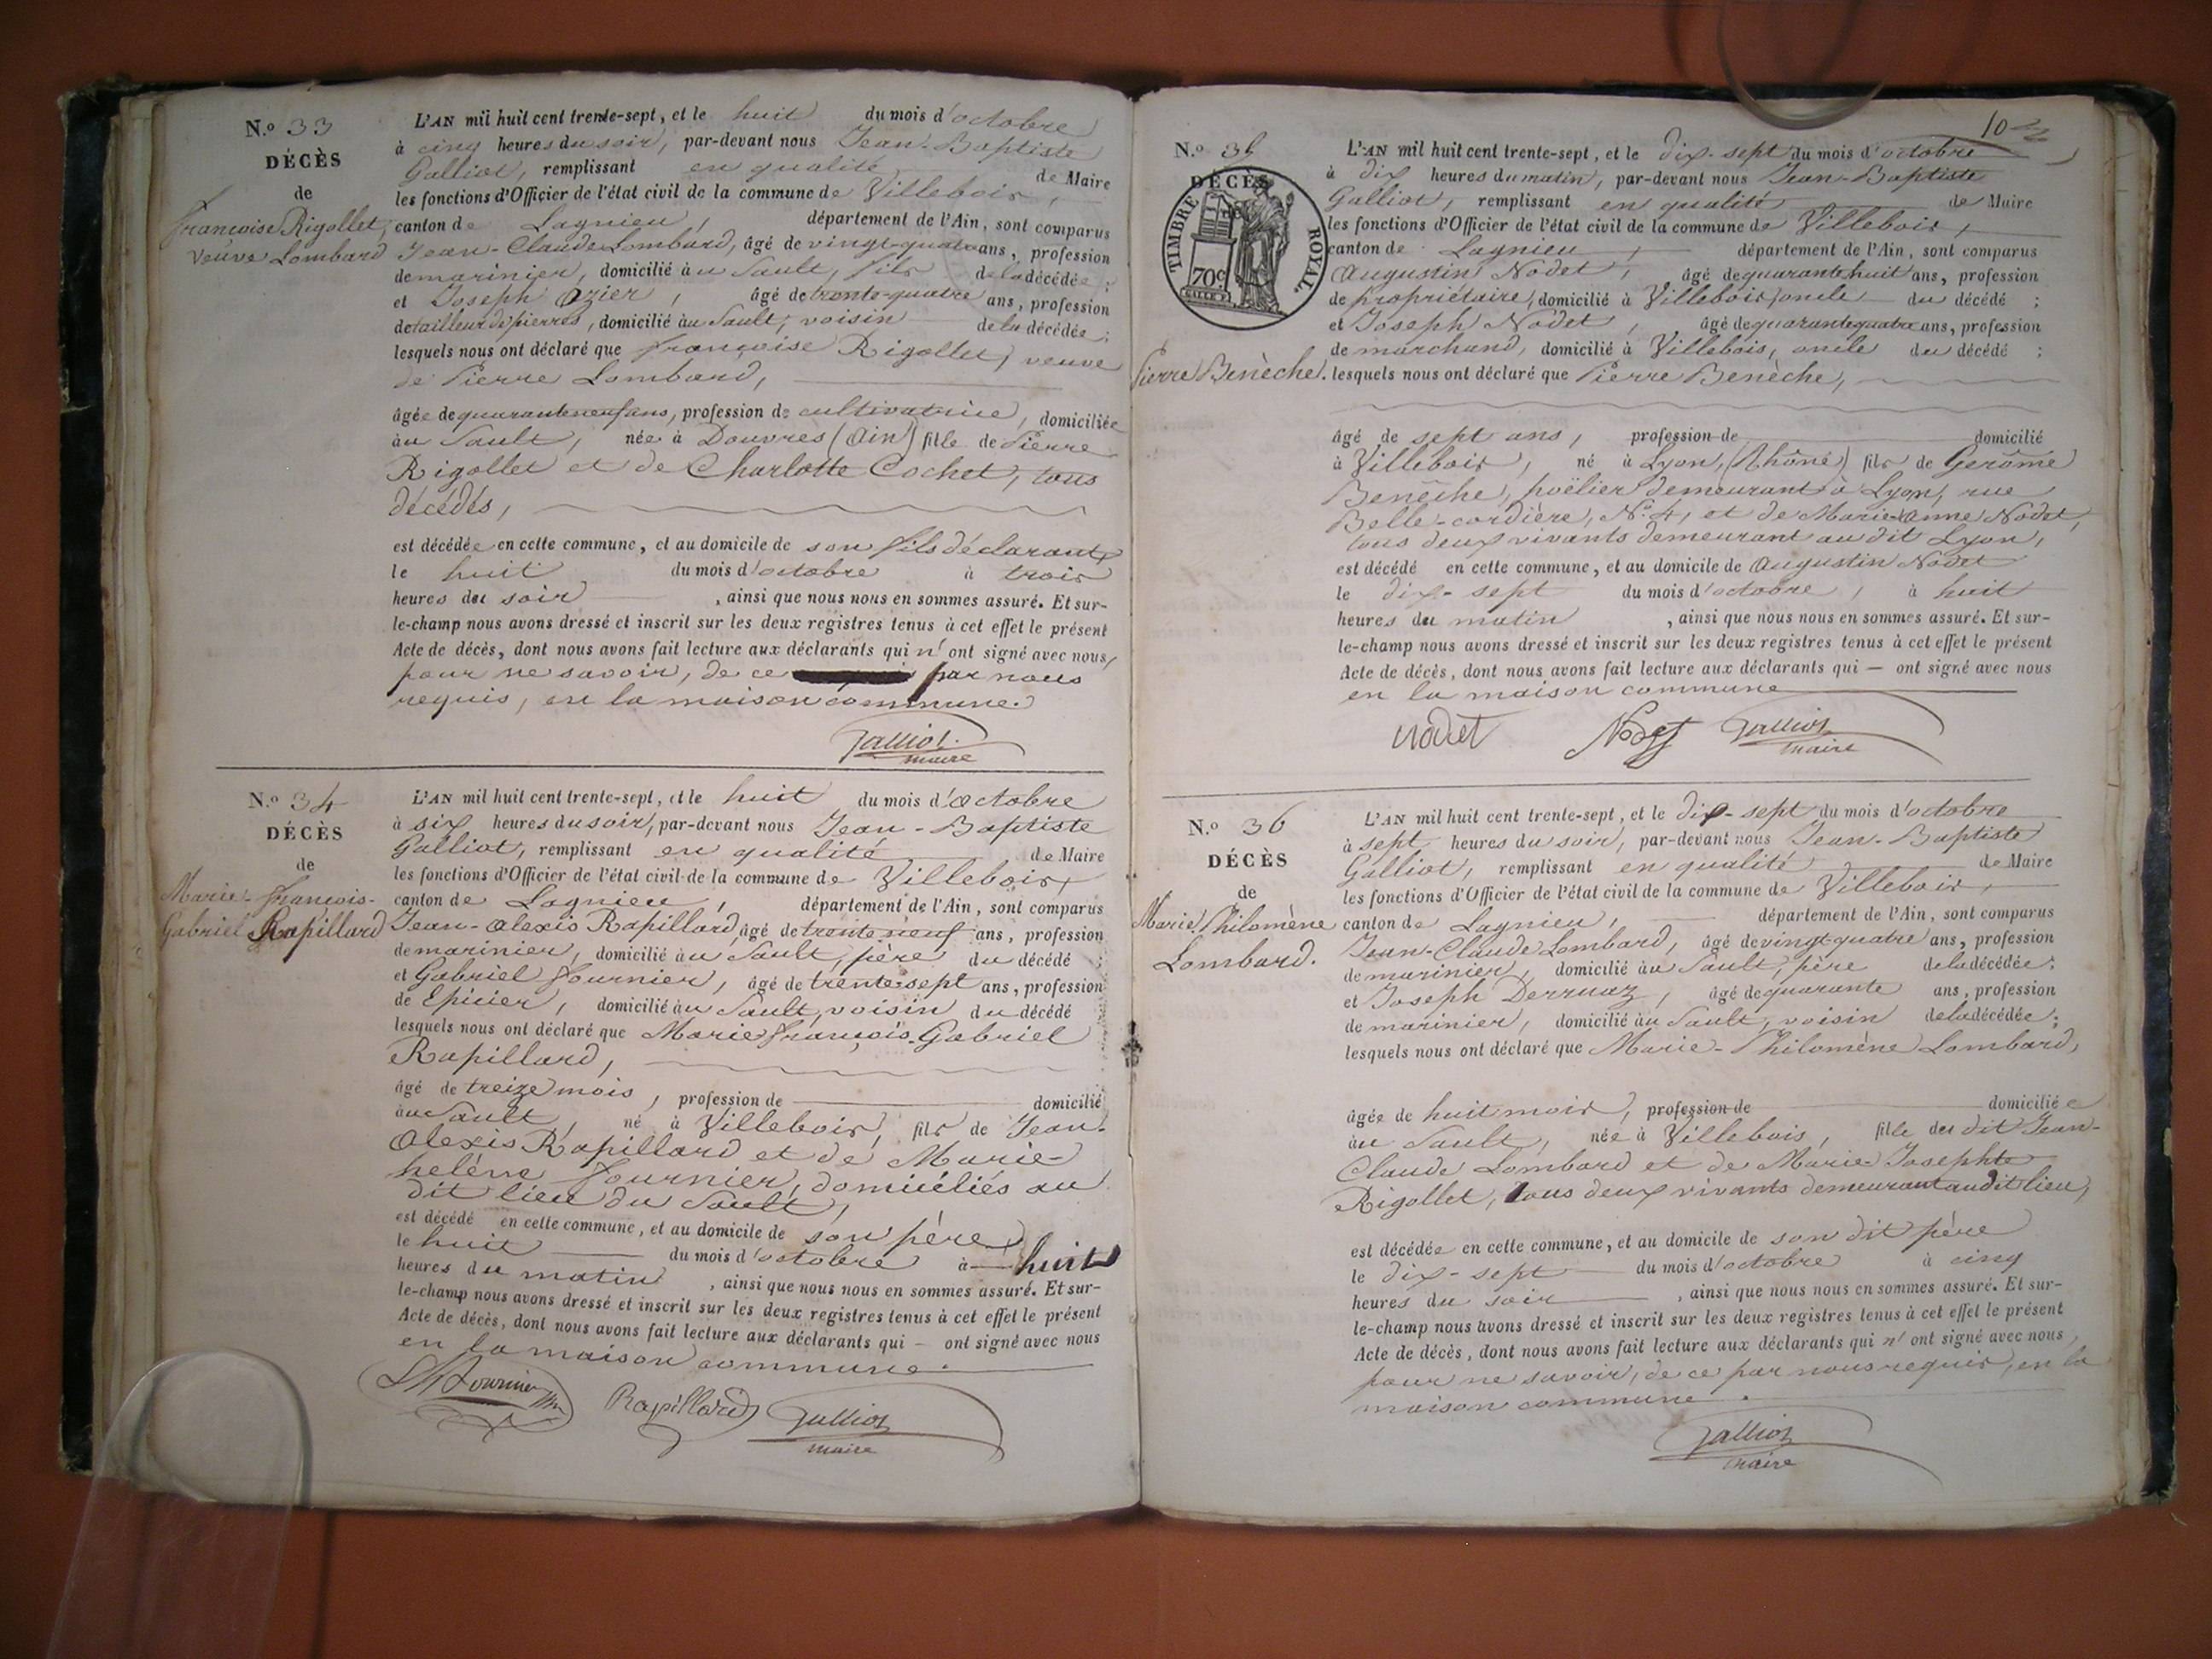 N.º 33
DÉCÈS
de
françoise Rigollet,
veuve Lombard
L'AN mil huit cent trente-sept, et le huit du mois d'octobre
à cinq heures du soir, par-devant nous Jean-Baptiste
Galliot, remplissant en qualité de Maire
les fonctions d'Officier de l'état civil de la commune de Villebois,
canton de Lagnieu, département de l'Ain, sont comparus
Jean-Claude Lombard, âgé de vingt-quatre ans, profession
de marinier, domicilié àu Sault, fils de la décédée ;
et Joseph Ozier, âgé de trente-quatre ans, profession
de tailleur de pierres, domicilié àu Sault, voisin de la décédée ;
lesquels nous ont déclaré que françoise Rigollet, veuve
de Pierre Lombard,
âgée de quarante neuf ans, profession de cultivatrice, domiciliée
àu Sault, née à Douvres (Ain) fille de Pierre
Rigollet et de Charlotte Cochet, tous
décédés,
est décédée en cette commune, et au domicile de son fils déclarant,
le huit du mois d'octobre à trois
heures du soir, ainsi que nous nous en sommes assuré. Et sur-
le-champ nous avons dressé et inscrit sur les deux registres tenus à cet effet le présent
Acte de décès, dont nous avons fait lecture aux déclarants qui n'ont signé avec nous,
pour ne savoir, de ce par nous
requis, en la maison commune.
Galliot.
maire
N.º 34
DÉCÈS
de
Marie-françois-
Gabriel Rapillard
L'AN mil huit cent trente-sept, et le huit du mois d'octobre
à six heures du soir, par-devant nous Jean-Baptiste
Galliot, remplissant en qualité de Maire
les fonctions d'Officier de l'état civil de la commune de Villebois,
canton de Lagnieu, département de l'Ain, sont comparus
Jean-Alexis Rapillard, âgé de trente neuf ans, profession
de marinier, domicilié àu Sault, père du décédé ;
et Gabriel fournier, âgé de trente sept ans, profession
de Epicier, domicilié àu Sault, voisin du décédé
lesquels nous ont déclaré que Marie françois-Gabriel
Rapillard,
âgé de treize mois, profession de domicilié
àu Sault, né à Villebois, fils de Jean-
Alexis Rapillard et de Marie-
heléne fournier, domiciliés au
dit lieu du Sault,
est décédé en cette commune, et au domicile de son père
le huit du mois d'octobre à huit
heures du matin, ainsi que nous nous en sommes assuré. Et sur-
le-champ nous avons dressé et inscrit sur les deux registres tenus à cet effet le présent
Acte de décès, dont nous avons fait lecture aux déclarants qui — ont signé avec nous
en la maison commune.
fournier
Rapillard
Galliot
maire
10
N.º 35
DÉCÈS
TIMBRE ROYAL.
70c
Pierre Benèche.
L'AN mil huit cent trente-sept, et le dix-sept du mois d'octobre
à dix heures du matin, par-devant nous Jean-Baptiste
Galliot, remplissant en qualité de Maire
les fonctions d'Officier de l'état civil de la commune de Villebois,
canton de Lagnieu, département de l'Ain, sont comparus
Augustin Nodet, âgé de quarante huit ans, profession
de propriétaire, domicilié à Villebois, oncle du décédé ;
et Joseph Nodet, âgé de quarante quatre ans, profession
de marchand, domicilié à Villebois, oncle du décédé ;
lesquels nous ont déclaré que Pierre Benèche,
âgé de sept ans, profession de domicilié
à Villebois, né à Lyon, (Rhône) fils de Gerôme
Benèche, poëlier demeurant à Lyon, rue
Belle-cordière, N.º 4, et de Marie-Anne Nodet,
tous deux vivants demeurant au dit Lyon,
est décédé en cette commune, et au domicile de Augustin Nodet
le dix-sept du mois d'octobre, à huit
heures du matin, ainsi que nous nous en sommes assuré. Et sur-
le-champ nous avons dressé et inscrit sur les deux registres tenus à cet effet le présent
Acte de décès, dont nous avons fait lecture aux déclarants qui — ont signé avec nous
en la maison commune
Nodet
Nodet
Galliot
maire
N.º 36
DÉCÈS
de
Marie Philomène
Lombard.
L'AN mil huit cent trente-sept, et le dix-sept du mois d'octobre
à sept heures du soir, par-devant nous Jean-Baptiste
Galliot, remplissant en qualité de Maire
les fonctions d'Officier de l'état civil de la commune de Villebois,
canton de Lagnieu, département de l'Ain, sont comparus
Jean-Claude Lombard, âgé de vingt-quatre ans, profession
de marinier, domicilié àu Sault, père de la décédée ;
et Joseph Derruaz, âgé de quarante ans, profession
de marinier, domicilié àu Sault, voisin de la décédée ;
lesquels nous ont déclaré que Marie-Philomène Lombard,
âgée de huit mois, profession de domiciliée
àu Sault, née à Villebois, fille du dit Jean-
Claude Lombard et de Marie-Josephte
Rigollet, tous deux vivants demeurant audit lieu,
est décédée en cette commune, et au domicile de son dit père
le dix-sept du mois d'octobre à cinq
heures du soir, ainsi que nous nous en sommes assuré. Et sur-
le-champ nous avons dressé et inscrit sur les deux registres tenus à cet effet le présent
Acte de décès, dont nous avons fait lecture aux déclarants qui n'ont signé avec nous,
pour ne savoir, de ce par nous requis, en la
maison commune.
Galliot
maire